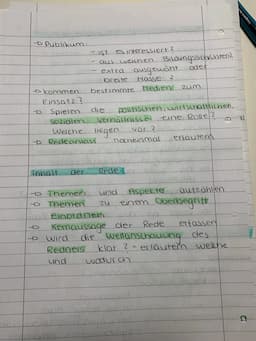 Publikum:
- ist es interessiert?
- aus welchen Bildungsschichten?
- extra ausgewählt oder
breite Masse?
kommen bestimmte Medien zum
Einsatz?
Spielen die politischen, wirtschaftlichen,
sozialen Verhältnisse eine Rolle?
Welche liegen vor?
Redeanlass nocheinmal erläutern
Inhalt der Rede:
Themen und Aspekte aufzählen
Themen zu einem Oberbegriff
Einordnen
Kernaussage der Rede erfassen
wird die Weltanschauung des
Redners klar? - erläutern welche
und wodurch